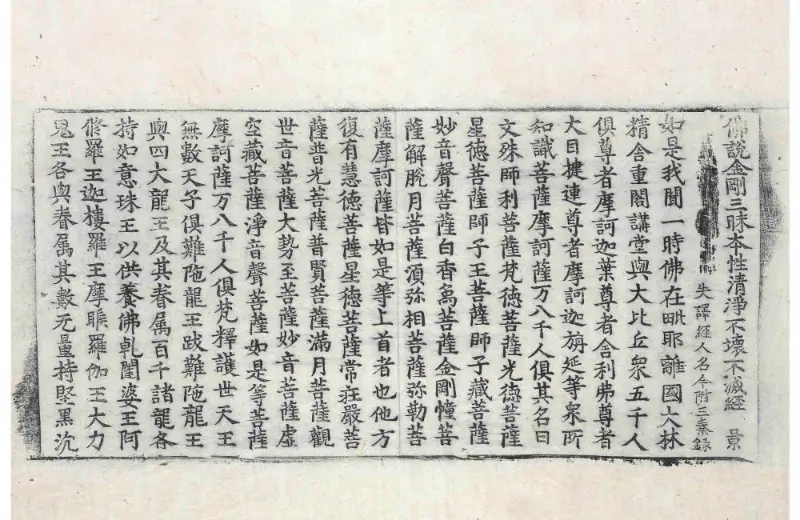 佛說金剛三昧本性清淨不壞不滅經 景
失譯經人名今附三秦錄
如是我聞一時佛在毗耶離國大林
精舍重閣講堂與大比丘眾五千人
俱尊者摩訶迦葉尊者舍利弗尊者
大目揵連尊者摩訶迦旃延等眾所
知識菩薩摩訶薩万八千人俱其名曰
文殊師利菩薩梵德菩薩光德菩薩
星德菩薩師子王菩薩師子藏菩薩
妙音聲菩薩白香象菩薩金剛幢菩
薩解脫月菩薩須弥相菩薩弥勒菩
薩摩訶薩皆如是等上首者也他方
復有慧德菩薩星德菩薩常莊嚴菩
薩普光菩薩普賢菩薩滿月菩薩觀
世音菩薩大勢至菩薩妙音菩薩虛
空藏菩薩淨音聲菩薩如是等菩薩
摩訶薩万八千人俱梵釋護世天王
無數天子俱難陁龍王跋難陁龍王
與四大龍王及其眷属百千諸龍各
持如意珠王以供養佛乹闥婆王阿
脩羅王迦樓羅王摩睺羅伽王大力
鬼王各與眷属其數无量持堅黑沉